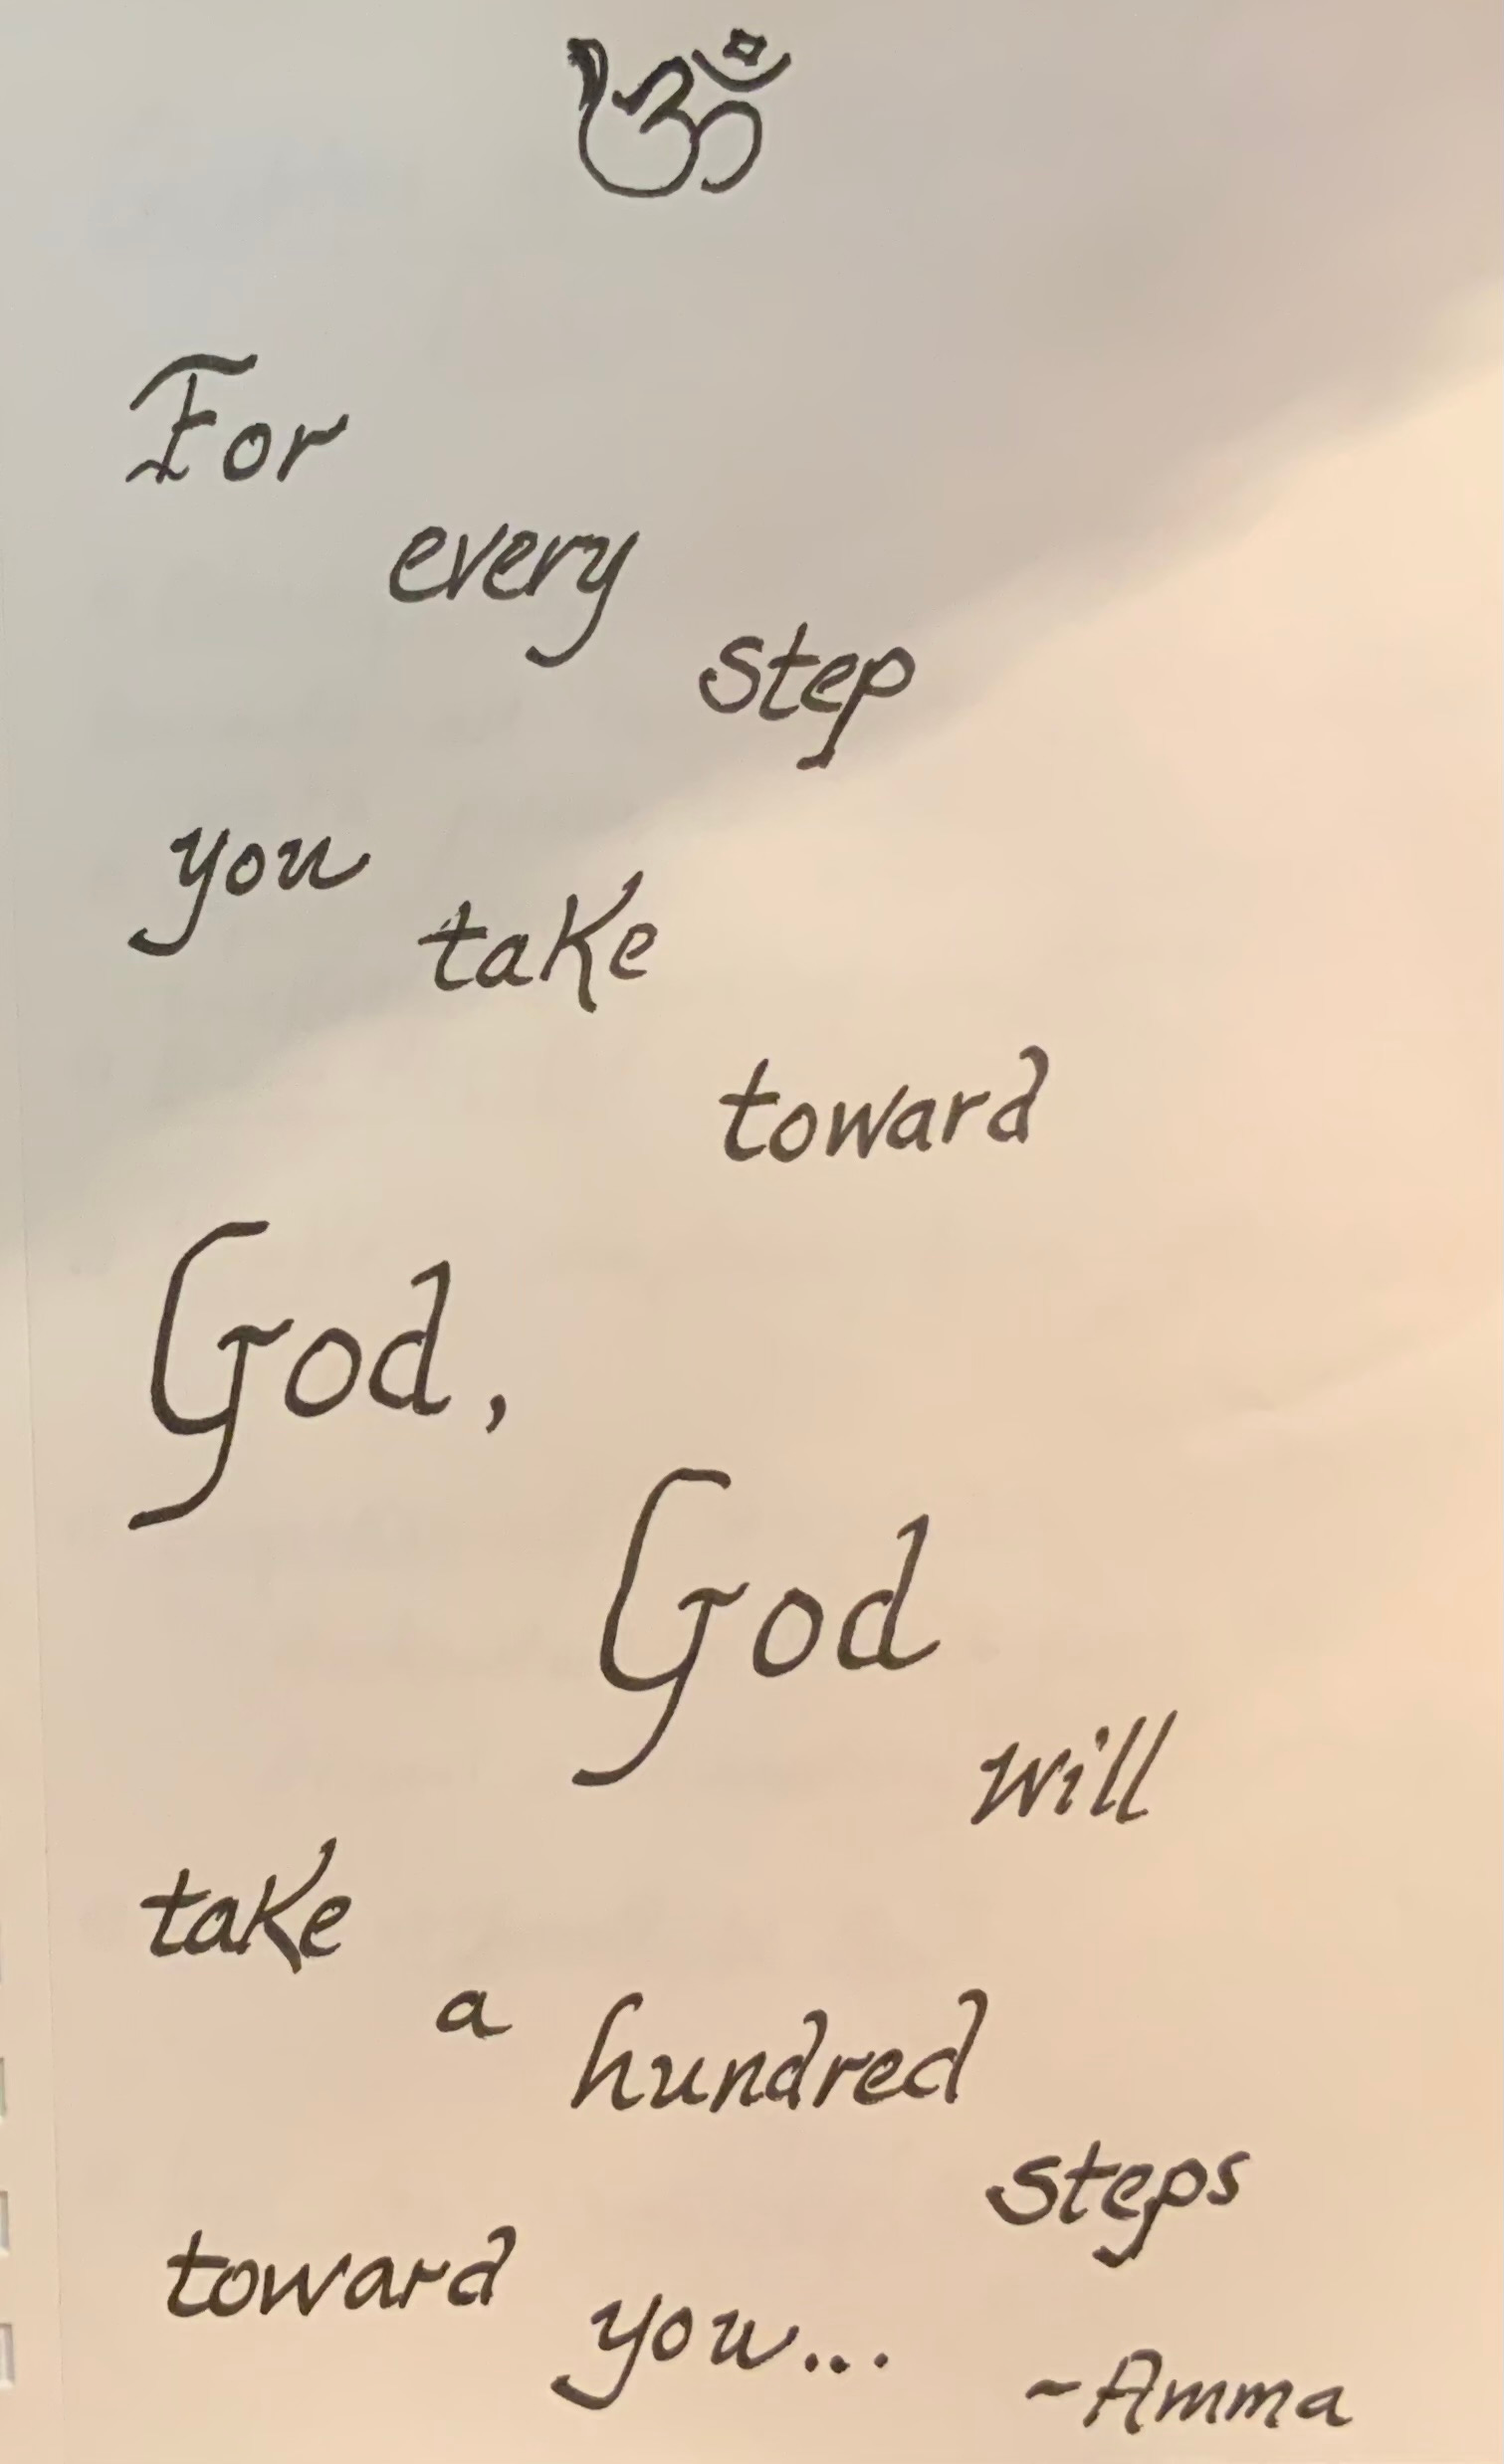 ॐ
For
every
step
you
take
toward
God,
God
will
take
a
hundred
steps
toward
you...
~Amma